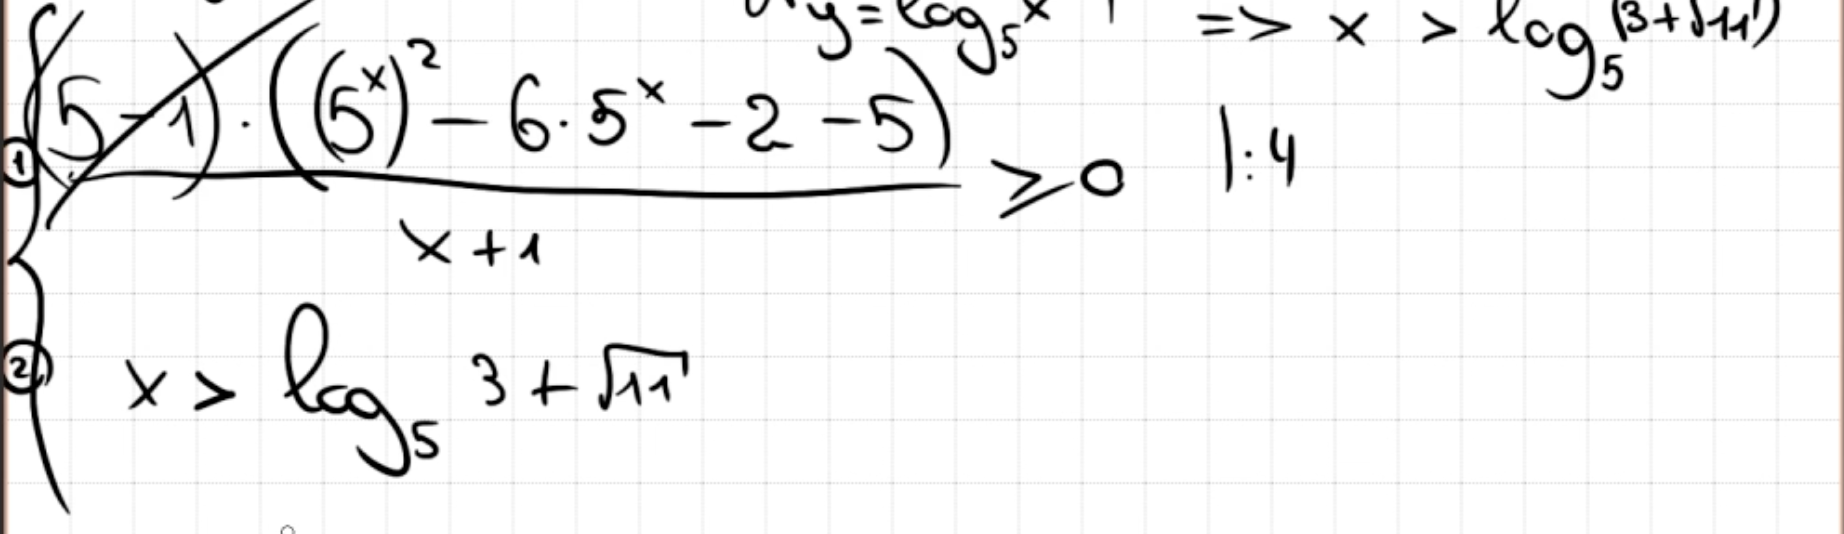 y = log₅x => x > log₅(3+√11)
① (5-1)·((5ˣ)² - 6·5ˣ - 2 - 5) / x+1 ≥ 0 |:4
② x > log₅ 3+√11